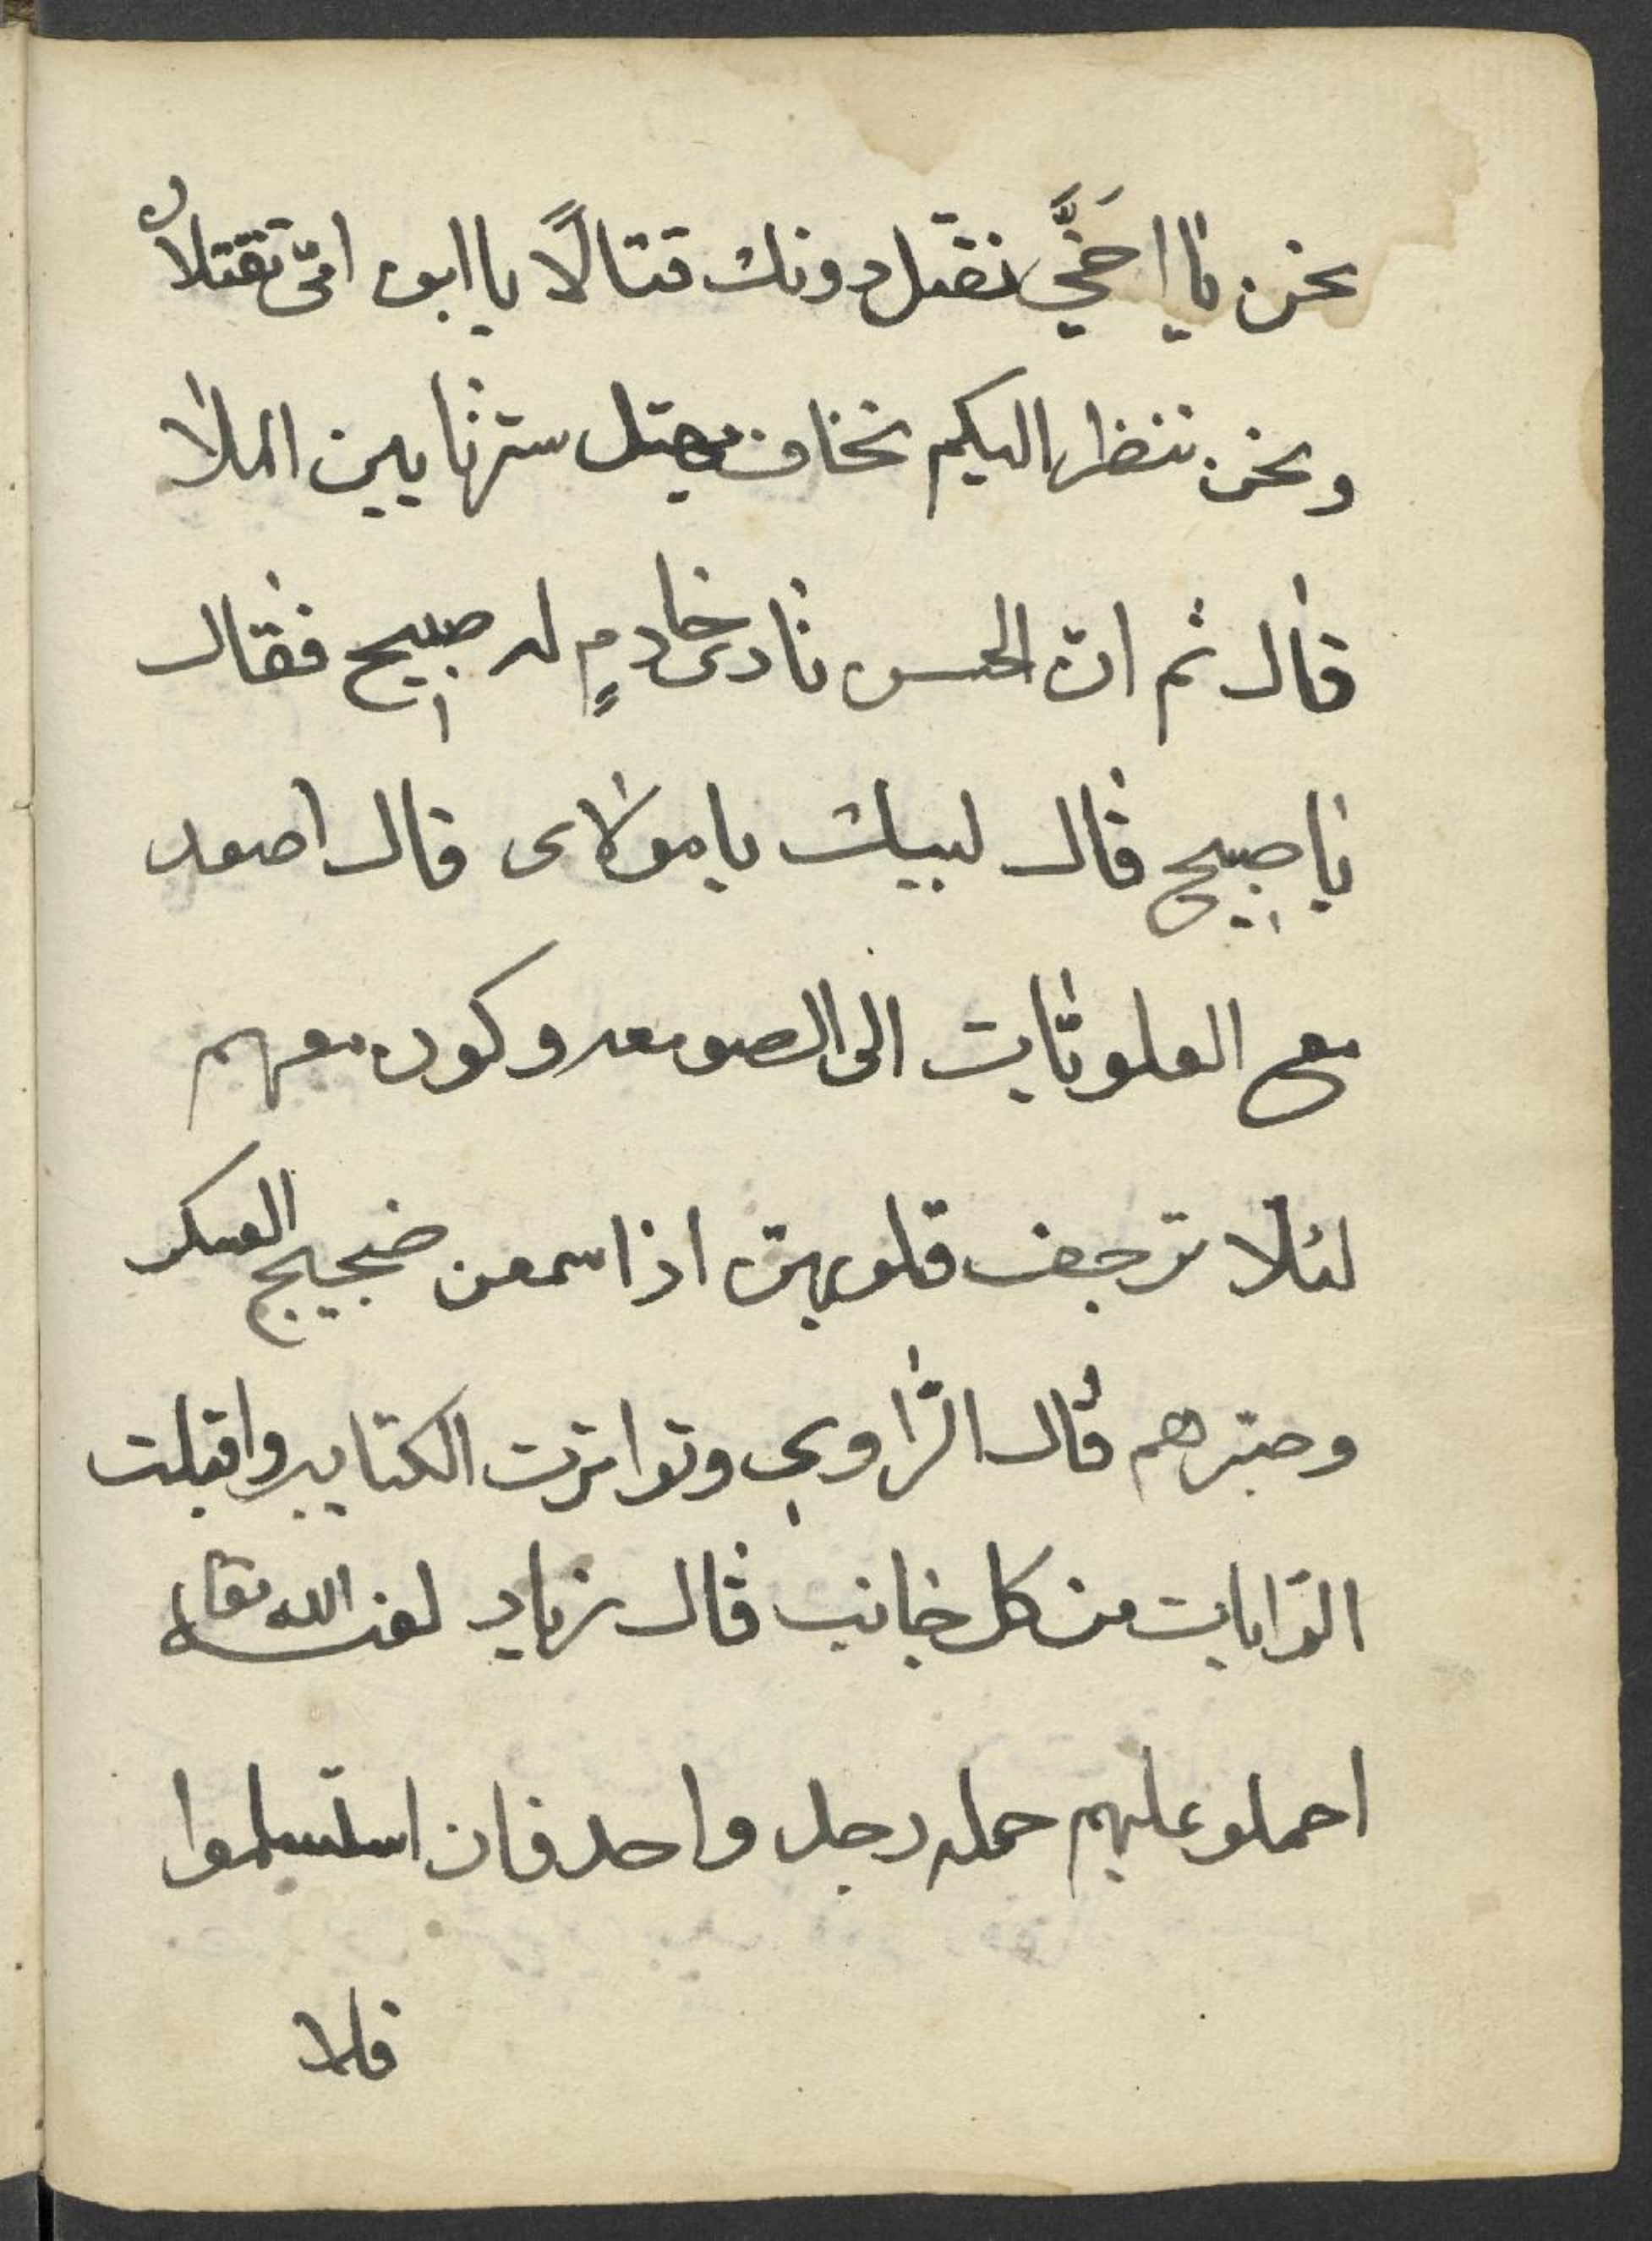 نحن يا اخَيَّ نقتل دونك قتالًا يا ابن امّي تقتلا
ونحن ننظر اليكم نخاف يهتل سترنا بين الملا
قال ثم انّ الحسن نادى خادمٍ له صبيح فقال
يا صبيح قال لبيك يا مولاى قال اصعد
مع العلويّات الى الصومعه وكون معهم
لئلّا ترجف قلوبهنّ اذا سمعن ضجيج العسكر
قال الرّاوي وتواترت الكتايب واقبلت
الرّايات من كل جانب قال زياد لعنه الله تعالى
احملو عليهم حمله رجل واحد فان استسلموا
فلا